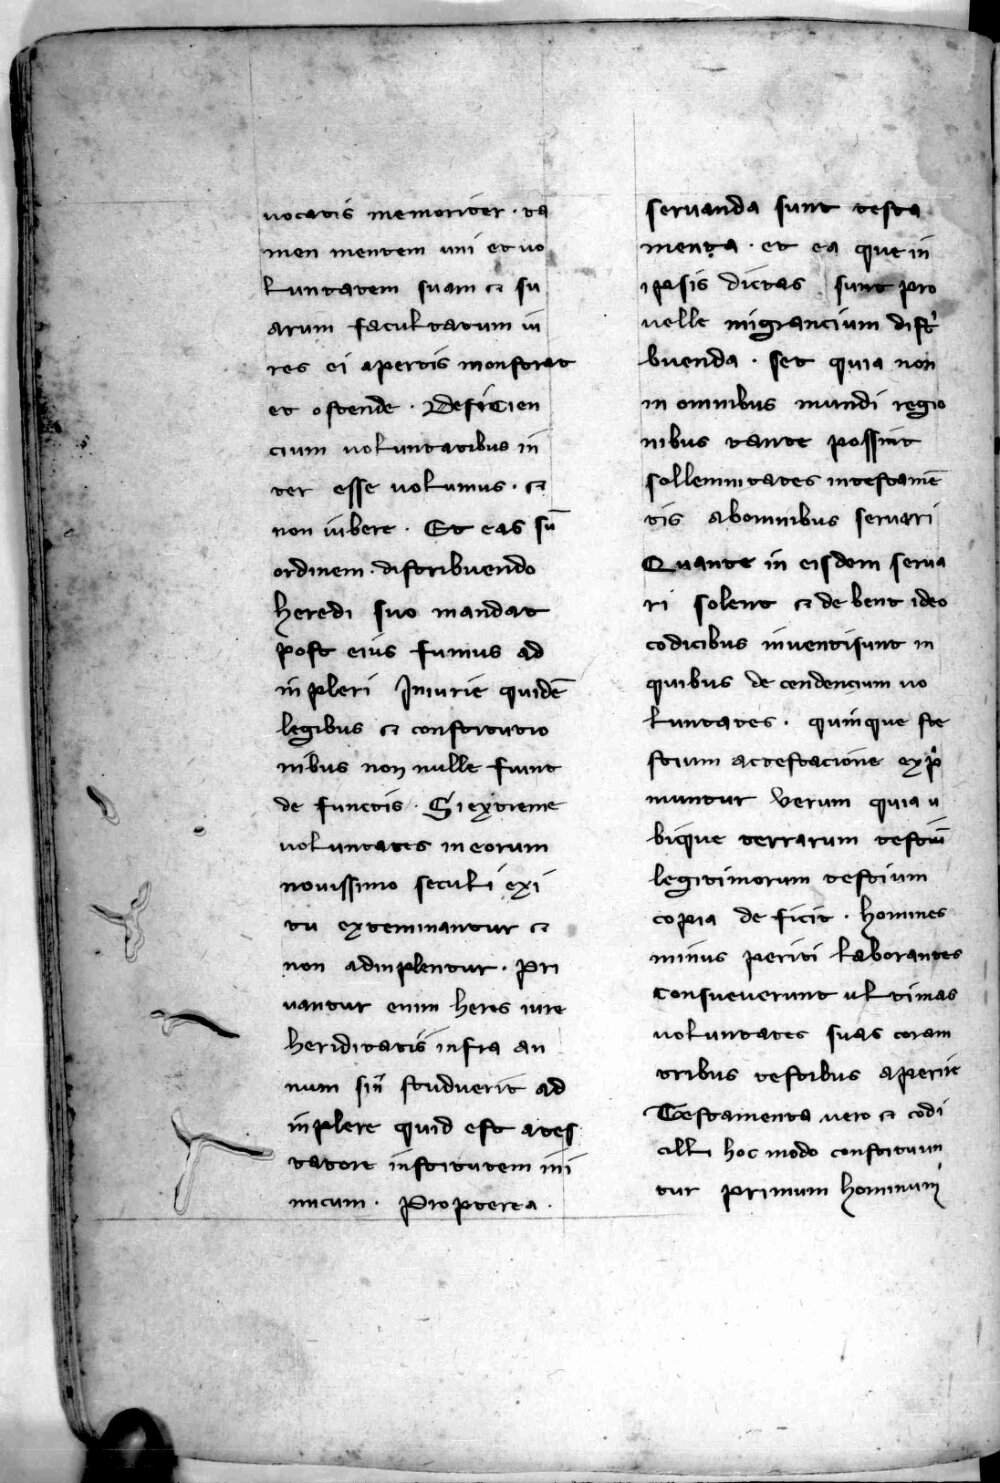 uocatis memoriter · ta
men mentem uni et uo
luntatem suam ⁊ su
arum facultatum iu
res ei apertis monstrat
et ostende · Deficien
cium uoluntatibus in
ter esse uolumus · ⁊
non iubere · Et eas sūu
ordinem · distribuendo
heredi suo mandat
post eius funus ad
inpleri Iniurie quidē
legibus ⁊ constitutio
nibus non nulle fiunt
de functis · Si extreme
uoluntates in eorum
nouissimo seculi exi
tu exterminantur ⁊
non adinplentur · Pri
uantur enim heres iure
heriditatis infra an
num sin̄ studuerit ad
inplere quid est ates
tatore institutem ini
nicum · Propterea ·
seruanda sunt testa
menta · et ea que in
ipsis dictas sunt pro
uelle migrancium distⁱ
buenda · set quia non
in omnibus mundi regio
nibus tante possint
sollemnitates in testamē
tis abomnibus seruari
Quante in eisdem serua
ri solent ⁊ de bent ideo
codicibus inuentisunt in
quibus de cendencium uo
luntates · quinque ste
stium attestacione expⁱ
muntur Verum quia u
bique terrarum testiū
legitimorum testium
copia de ficit · homines
minus periti laborantes
Consueuerunt ultimas
uoluntates suas coram
tribus testibus aperire
Testamenta uero ⁊ codi
cilli hoc modo constituun
tur primum hominum